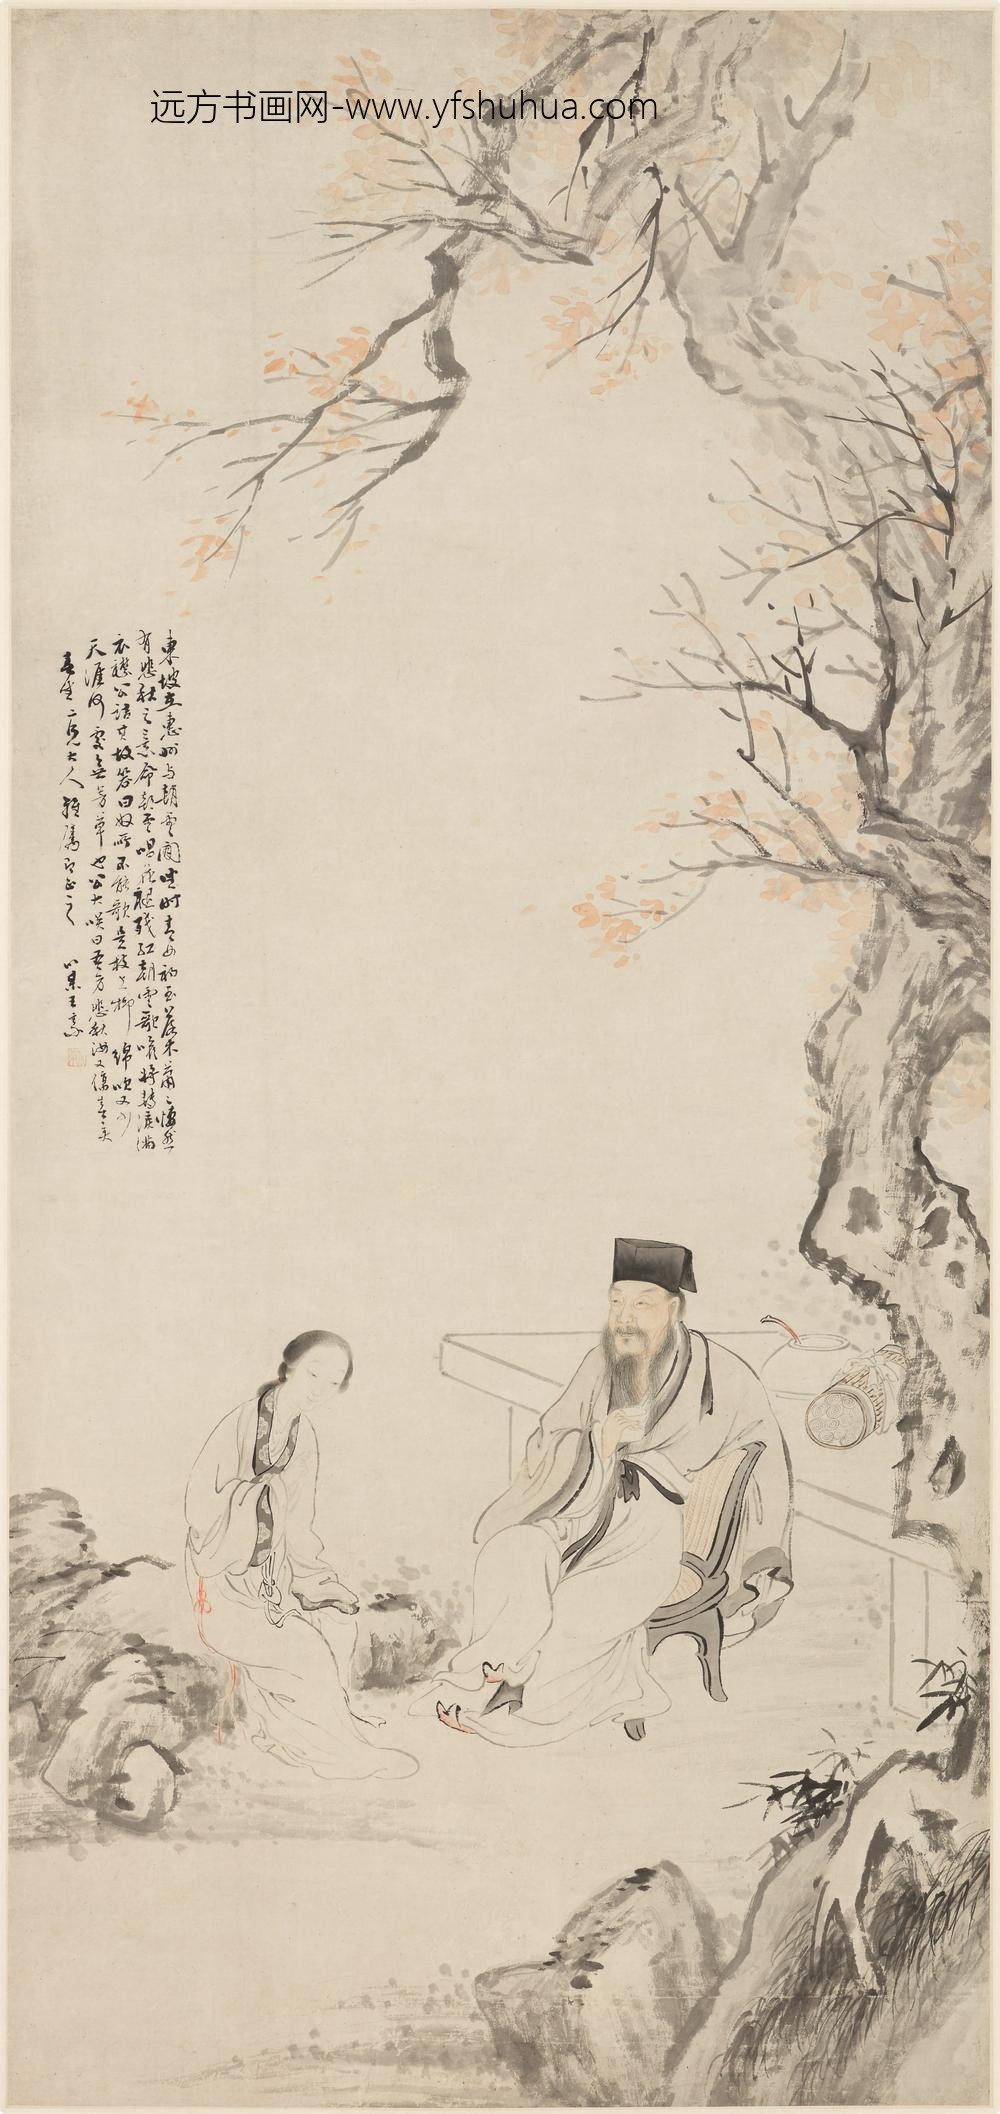 远方书画网-www.yfshuhua.com
東坡在惠州与朝雲閒坐時青女初至落木蕭〻悽然
有悲秋之意命朝雲唱花褪殘紅朝雲歌喉將囀淚滿
衣襟公詰其故答曰奴所不能歌是枝上柳綿吹又少
天涯何處無芳草也公大咲曰吾方悲秋汝又傷春矣
二兄大人雅屬即正之